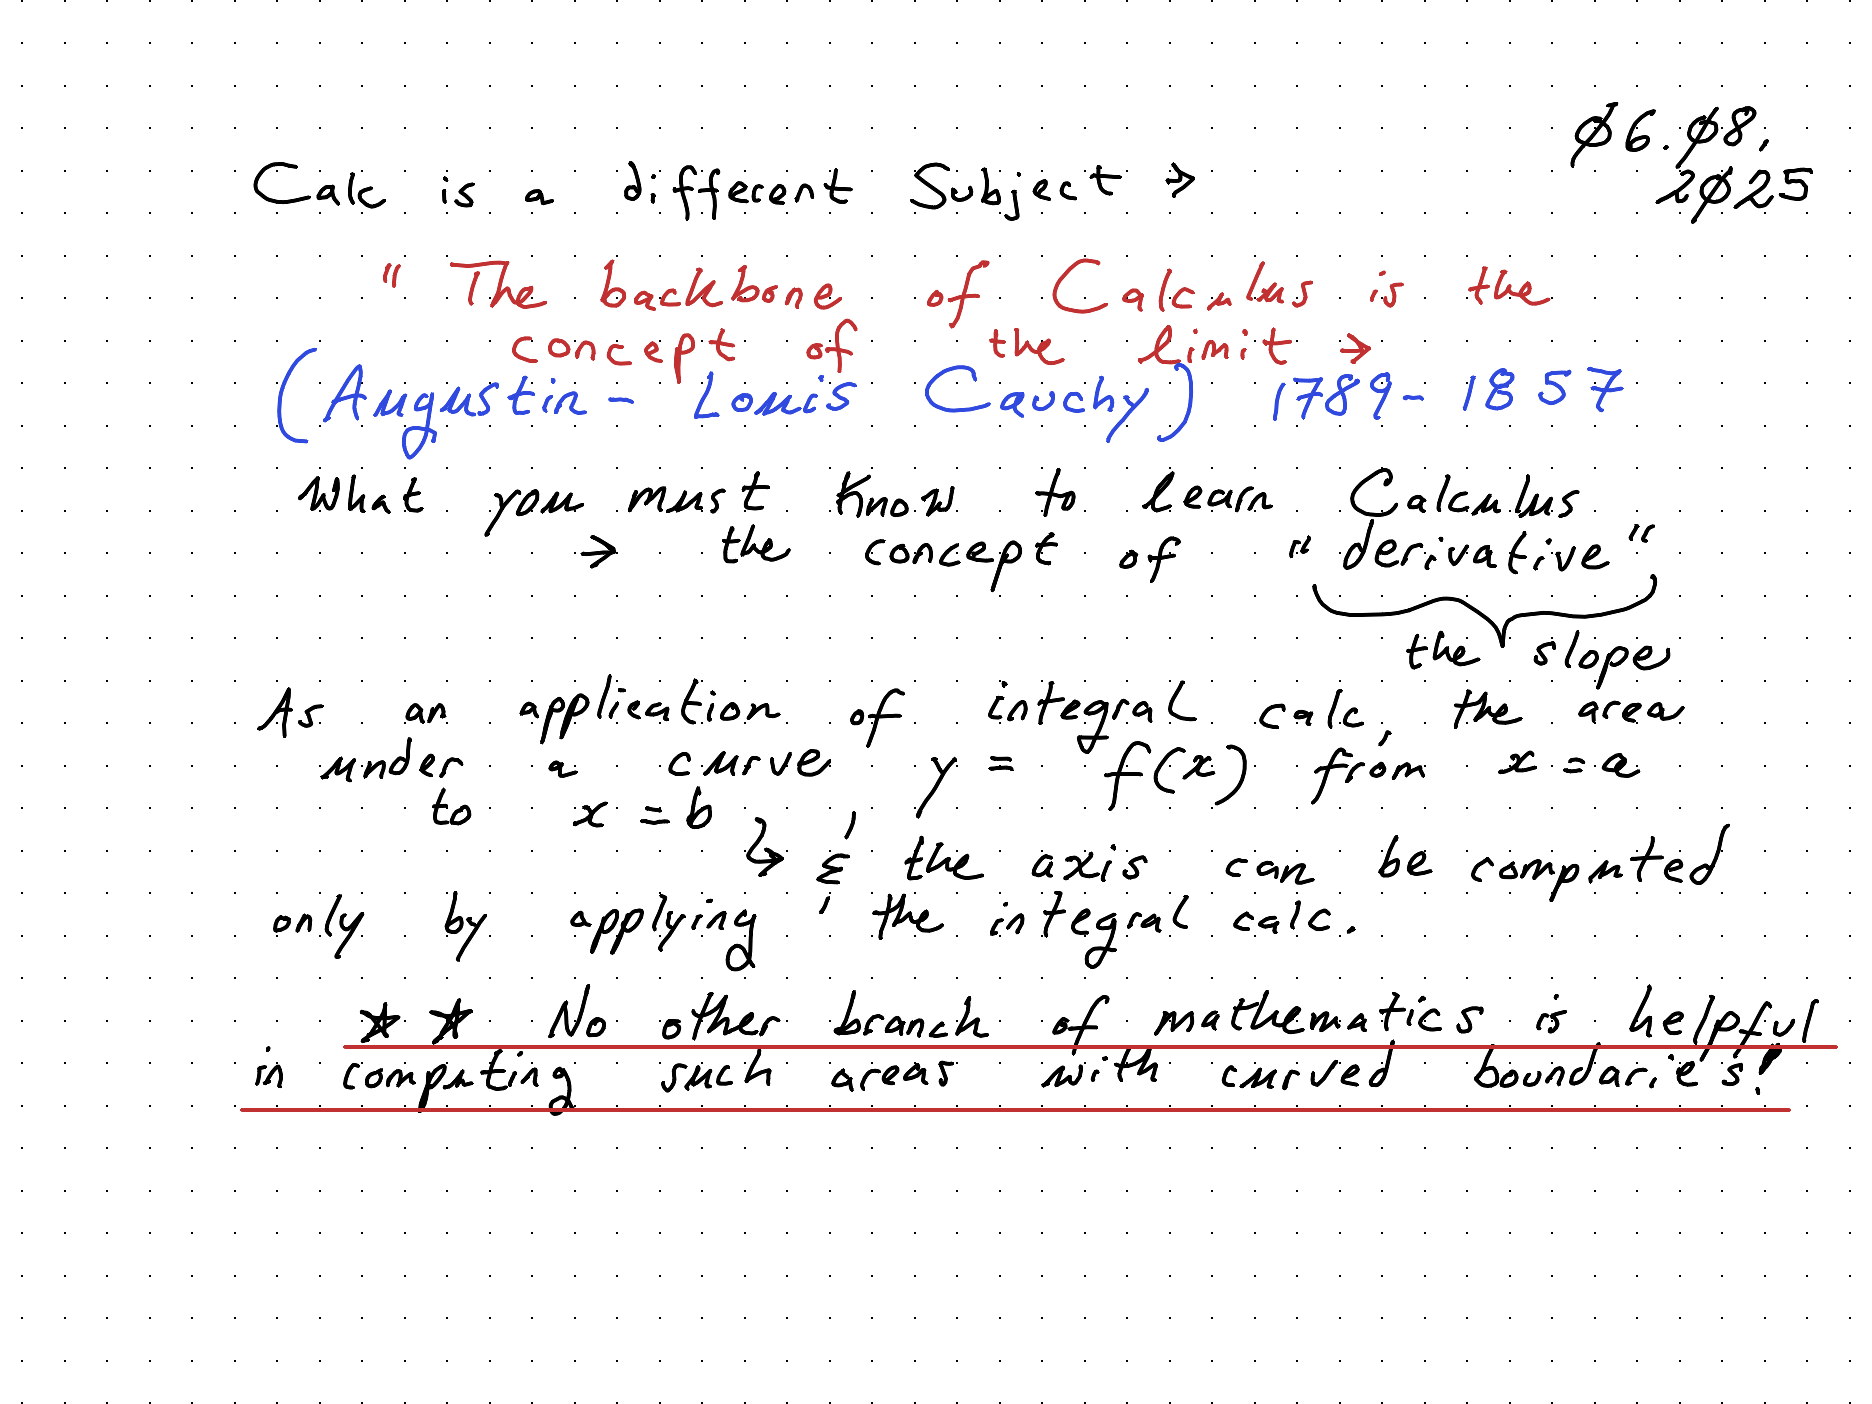 06.08,
2025
Calc is a different Subject →
" The backbone of Calculus is the
concept of the limit →
(Augustin - Louis Cauchy) 1789 - 1857
What you must know to learn Calculus
→ the concept of "derivative"
the slope
As an application of integral calc, the area
under a curve y = f(x) from x = a
to x = b
↳ & the axis can be computed
only by applying the integral calc.
★ ★ No other branch of mathematics is helpful
in computing such areas with curved boundaries!